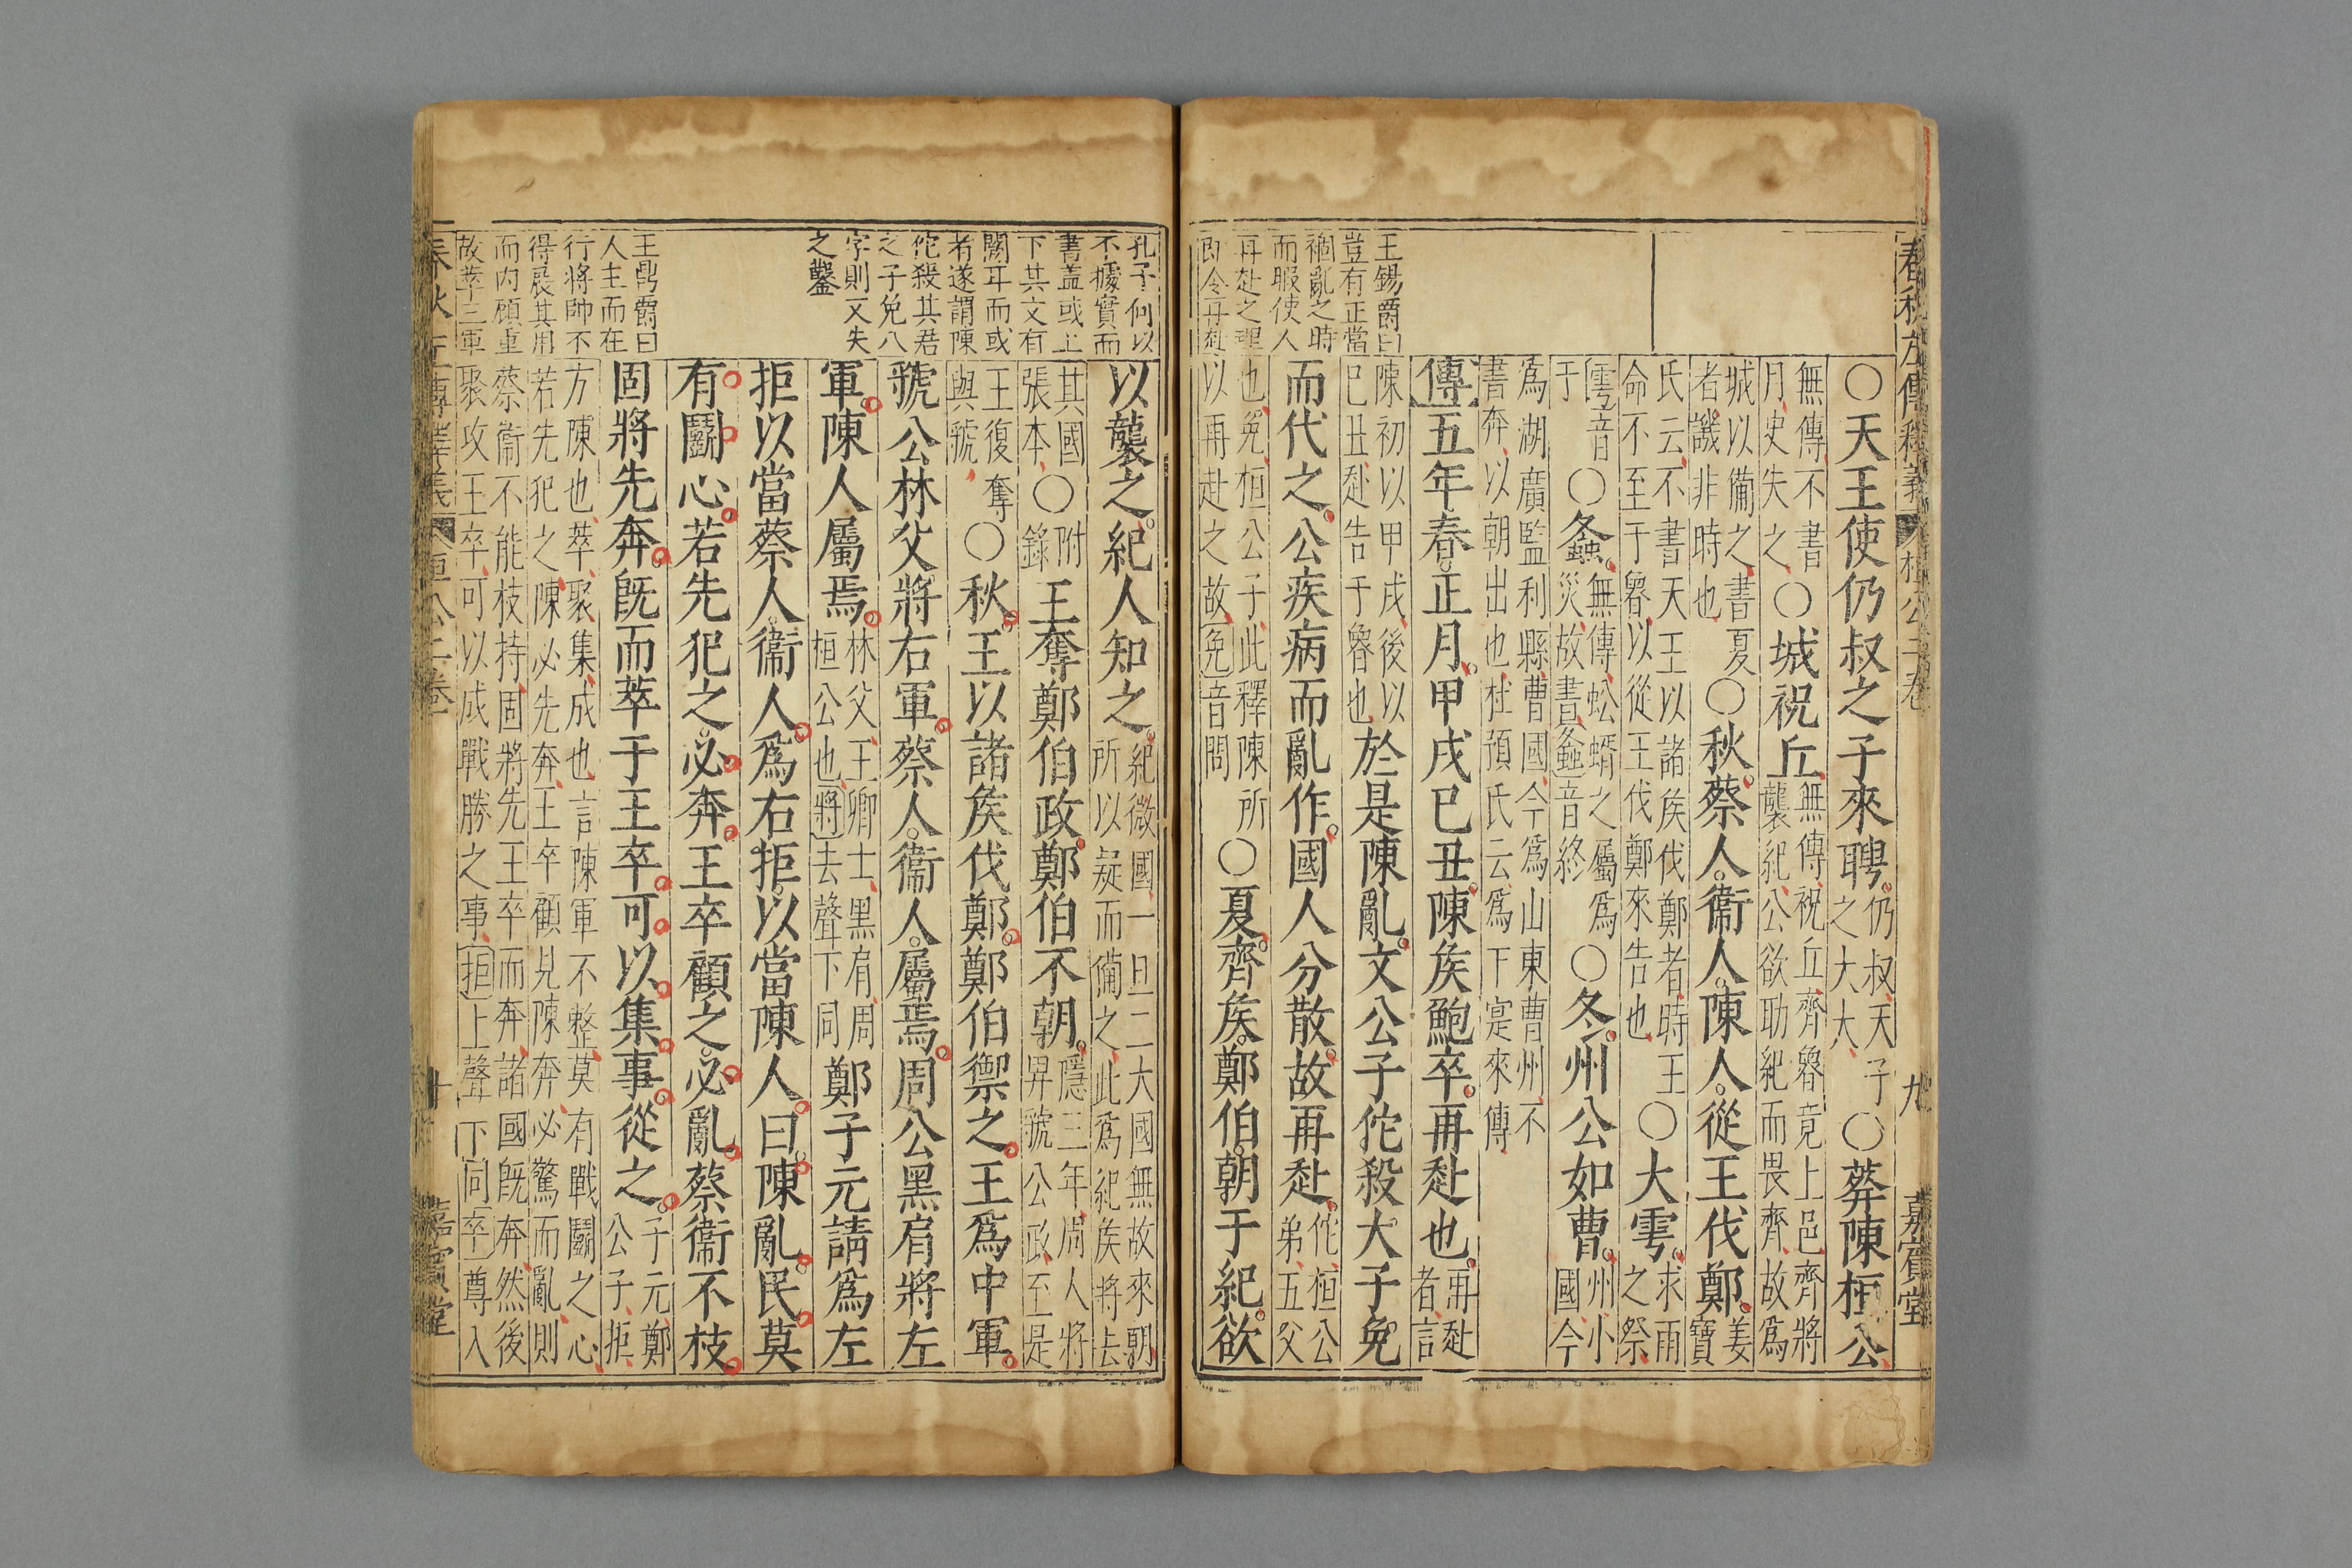 春秋左傳釋義 桓公二卷 九 嘉賓堂
〇天王使仍叔之子來聘仍叔天子之大大〇葬陳桓公
無傳不書月史失之〇城祝丘無傳祝丘齊魯竟上邑齊將襲紀公欲助紀而畏齊故爲
城以備之書夏者譏非時也〇秋蔡人衞人陳人從王伐鄭姜寶
氏云不書天王以諸侯伐鄭者時王命不至于魯以從王伐鄭來告也〇大雩求雨之祭
雩音于〇螽無傳蚣蝑之屬爲災故書螽音終〇冬州公如曹州小國今
爲湖廣監利縣曹國今爲山東曹州不書奔以朝出也杜預氏云爲下寔來傳
傳五年春正月甲戌己丑陳侯鮑卒再赴也再赴者言
陳初以甲戌後以己丑赴告于魯也於是陳亂文公子佗殺大子免
而代之公疾病而亂作國人分散故再赴佗桓公弟五父
也免桓公子此釋陳所以再赴之故免音問〇夏齊侯鄭伯朝于紀欲
王錫爵曰
豈有正當
禍亂之時
而暇使人
再赴之理
即令再赴
以襲之紀人知之紀微國一旦二大國無故來朝所以疑而備之此爲紀侯將去
其國張本〇附錄王奪鄭伯政鄭伯不朝隱三年周人將畀虢公政至是
王復奪與虢〇秋王以諸侯伐鄭鄭伯禦之王爲中軍
虢公林父將右軍蔡人衞人屬焉周公黑肩將左
軍陳人屬焉林父王卿士黑肩周桓公也將去聲下同鄭子元請爲左
拒以當蔡人衞人爲右拒以當陳人曰陳亂民莫
有鬬心若先犯之必奔王卒顧之必亂蔡衞不枝
固將先奔旣而萃于王卒可以集事從之子元鄭公子拒
方陳也萃聚集成也言陳軍不整莫有戰鬬之心若先犯之陳必先奔王卒顧見陳奔必驚而亂則
蔡衞不能枝持固將先王卒而奔諸國旣奔然後聚攻王卒可以成戰勝之事拒上聲下同卒尊入
孔子何以
不據實而
書蓋或上
下其文有
闕耳而或
者遂謂陳
佗殺其君
之子免八
字則又失
之鑿
王鼎爵曰
人主而在
行將帥不
得展其用
而內顧重
故萃三軍
嘉賓堂